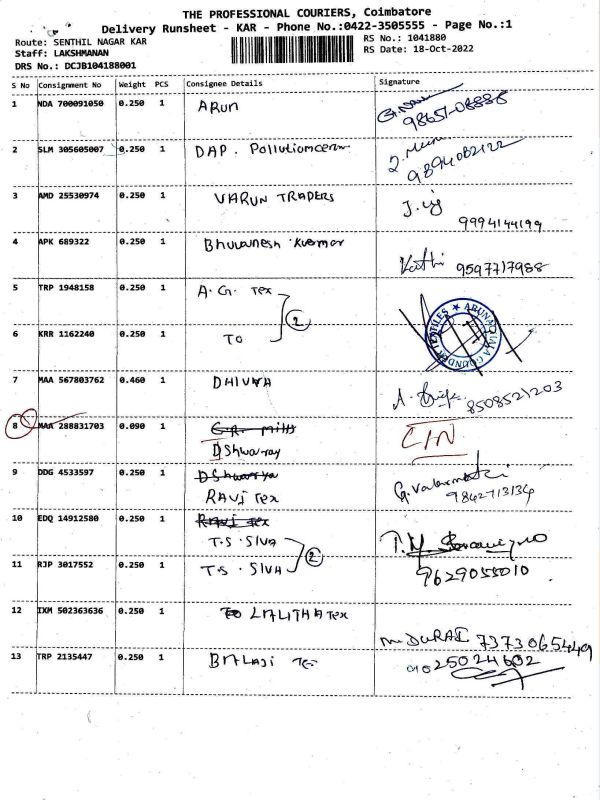 THE PROFESSIONAL COURIERS, Coimbatore
Delivery Runsheet - KAR - Phone No.:0422-3505555 - Page No.:1
Route: SENTHIL NAGAR KAR
RS No.: 1041880
Staff: LAKSHMANAN
RS Date: 18-Oct-2022
DRS No.: DCJB104188001
S No Consignment No Weight PCS Consignee Details Signature
1 NDA 700091050 0.250 1 ARUN
98657-08888
2 SLM 305605007 0.250 1 DAP. Pollutioncem
9894082122
3 AMD 25530974 0.250 1 VARUN TRADERS
9994144199
4 APK 689322 0.250 1 Bhuvanesh Kumar
9597717988
5 TRP 1948158 0.250 1 A.G. Tex
2
ARUNACHALA GOUNDER TEXTILES
6 KRR 1162240 0.250 1 TO
7 MAA 567803762 0.460 1
8508521203
8 MAA 288831703 0.090 1 G.R. mills
CIN
9 DDG 4533597 0.250 1
RAVI Tex
9842713134
10 EDQ 14912580 0.250 1 Ravi Tex
T.S. SIVA
2
11 RJP 3017552 0.250 1 T.S. SIVA
9629055010
12 IXM 502363636 0.250 1 LALITHA Tex
DURAI 7373065449
13 TRP 2135447 0.250 1 BALAJI Tex